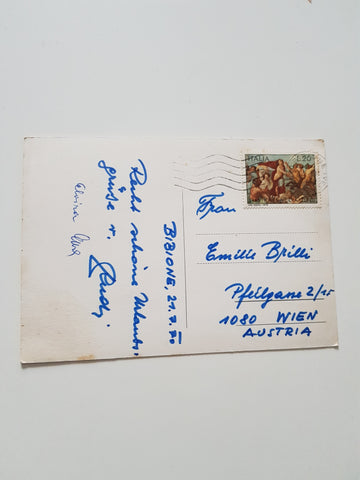 BIBIONE, 21.7.70
Recht schöne Urlaubs-
grüße v. Rudi
Elvira
ITALIA L.20
Frau
Emilie Brilli
Pfeilgasse 2/15
1080 WIEN
AUSTRIA